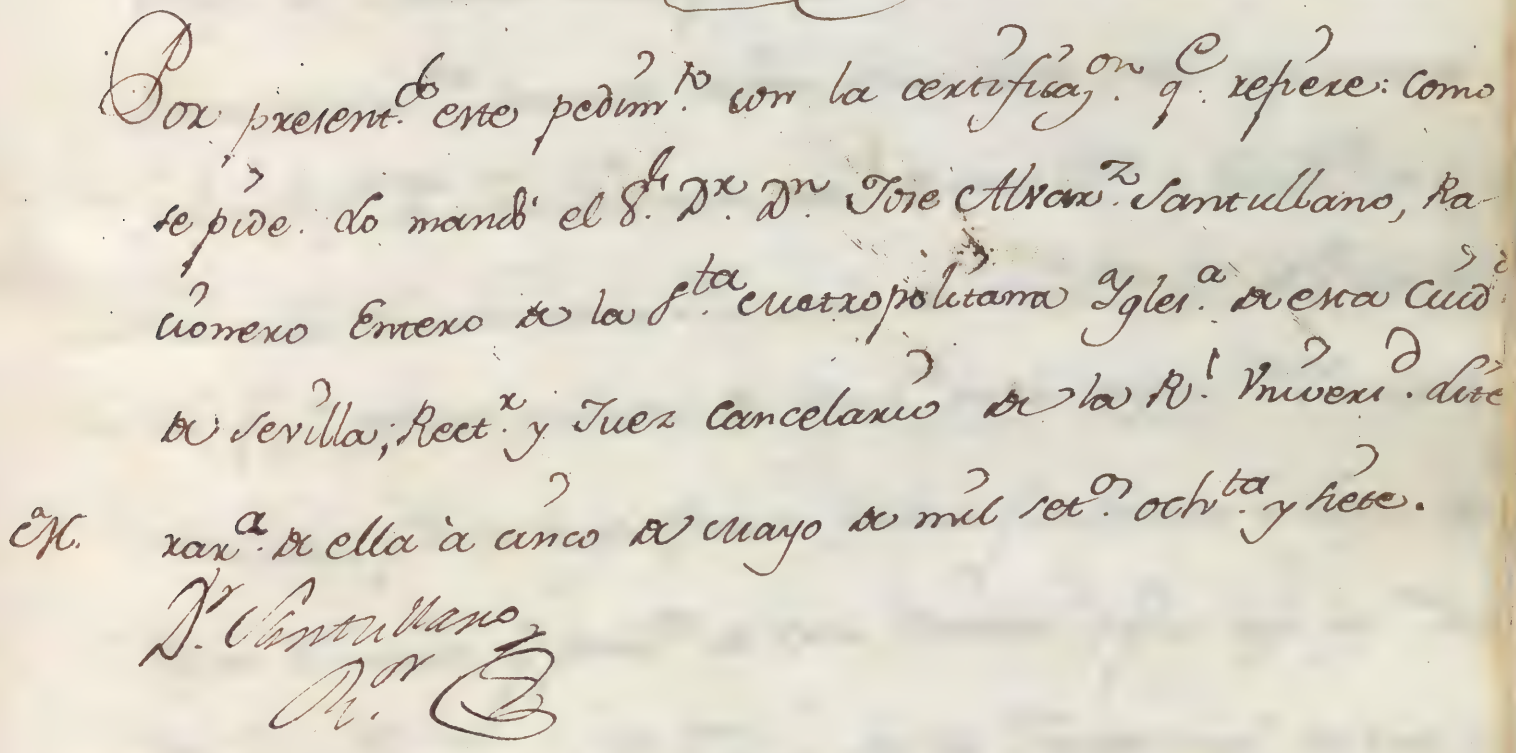 Por present.do este pedim.to con la certificaz.on q.e refiere: como
se pide. Lo mandó el S.or D.r D.n Jose Alvar.z Santullano, Ra-
cionero Entero de la S.ta Metropolitana Ygles.a de esta Ciud.d
de Sevilla; Rect.r y Juez Cancelario de la R.l Univers.d Lite
M. rar.a de ella à cinco de Mayo de mil set.s och.ta y siete.
D.r Santullano
R.or